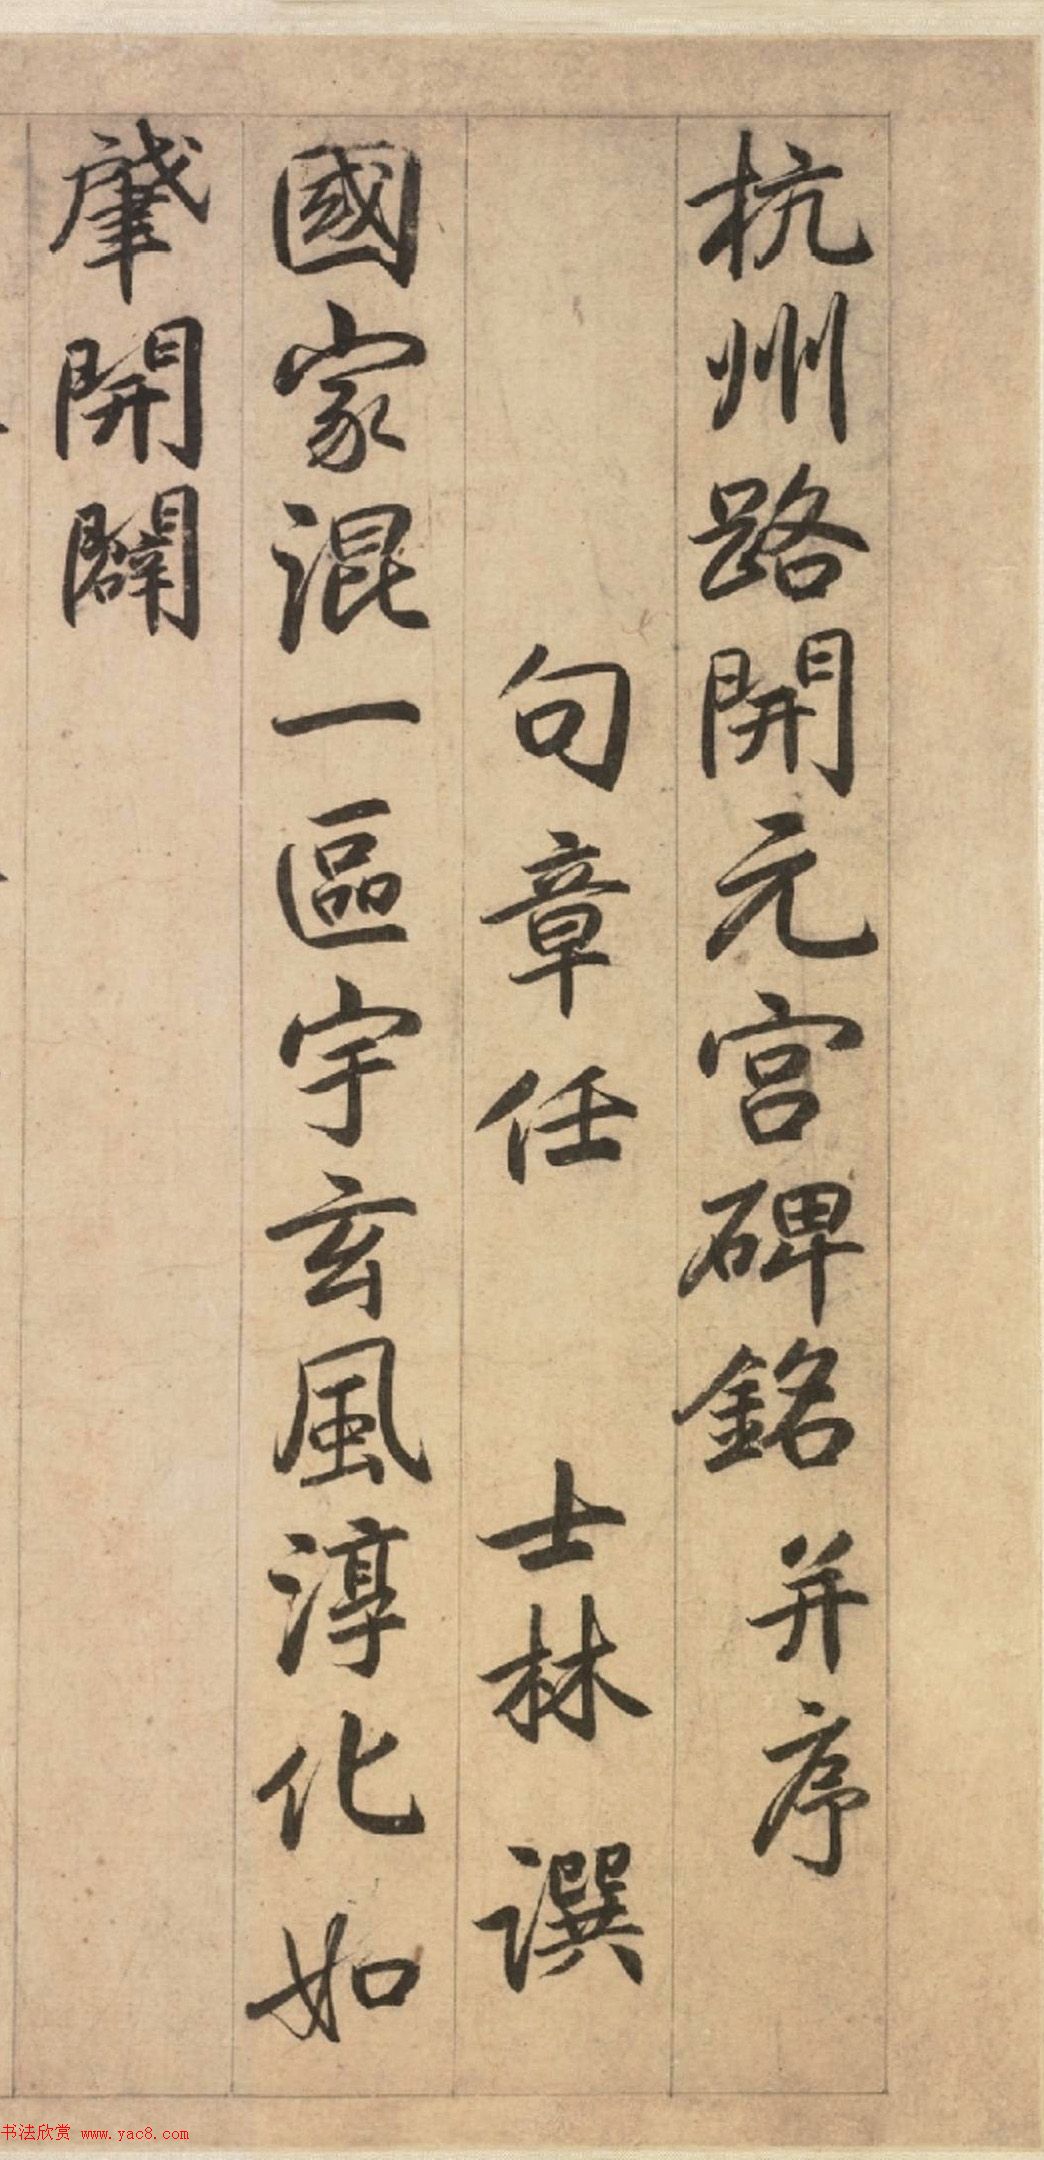 杭州路開元宮碑銘并序
句章任士林譔
國家混一區宇玄風淳化如
肈開闢
书法欣赏 www.yac8.com